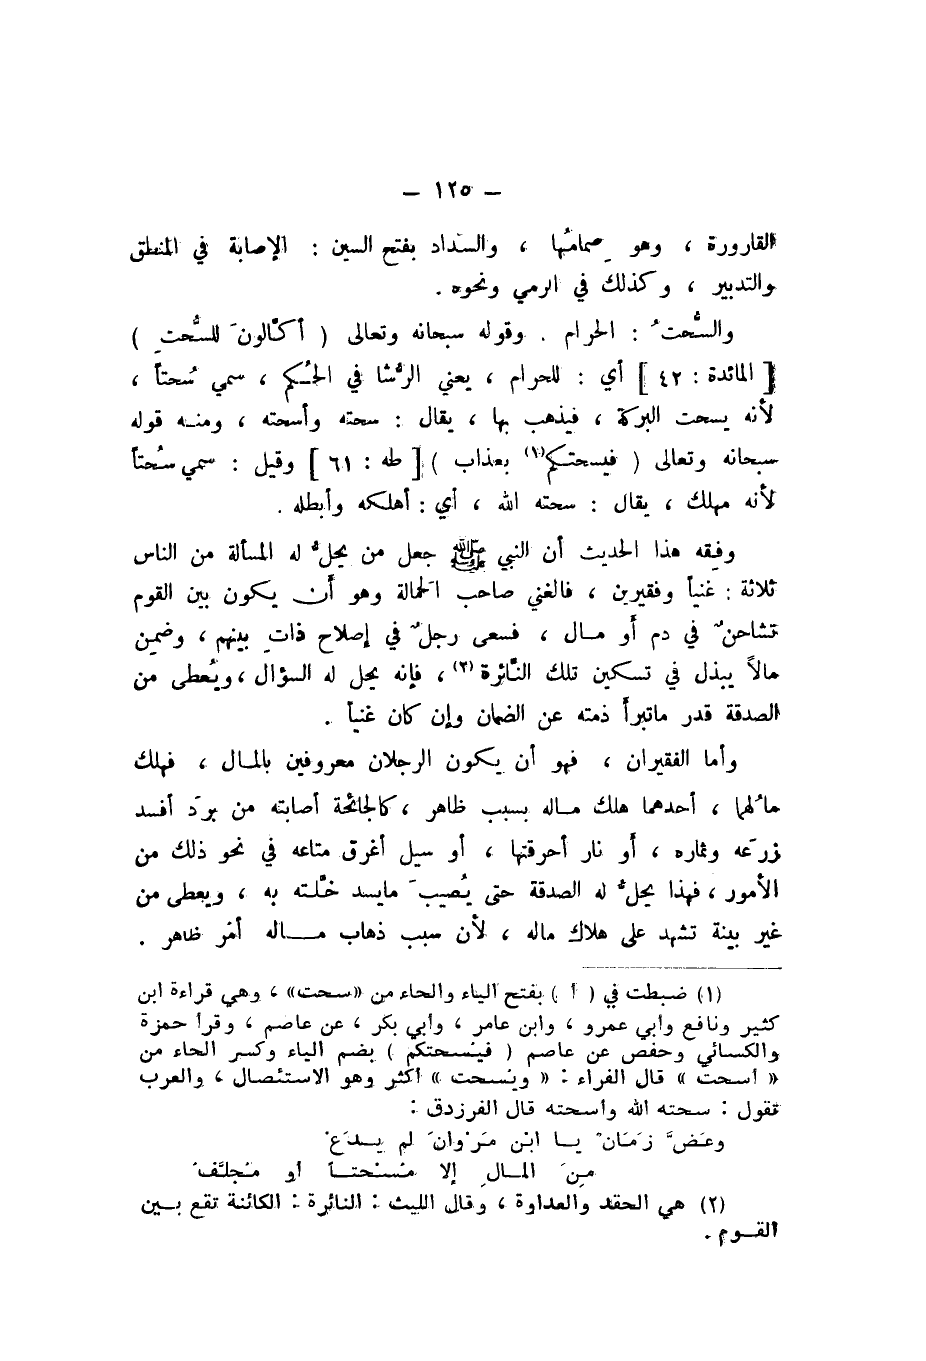 — ١٢٥ —
القارورة ، وهو صِمامُها ، والسَّداد بفتح السين : الإصابة في المنطق
والتدبير ، وكذلك في الرمي ونحوه .
والسُّحتُ : الحرام . وقوله سبحانه وتعالى ( أكَّالونَ للسُّحتِ )
[ المائدة : ٤٢ ] أي : للحرام ، يعني الرُّشا في الحُكم ، سمي سُحتاً ،
لأنه يسحت البركة ، فيذهب بها ، يقال : سحته وأسحته ، ومنه قوله
سبحانه وتعالى ( فيسحتكم (١) بعذاب ) [ طه : ٦١ ] وقيل : سمي سُحتاً
لأنه مهلك ، يقال : سحته الله ، أي : أهلكه وأبطله .
وفقه هذا الحديث أن النبي ﷺ جعل من يحلُّ له المسألة من الناس
ثلاثة : غنياً وفقيرين ، فالغني صاحب الحَمالة وهو أن يكون بين القوم
تشاحنٌ في دم أو مال ، فسعى رجلٌ في إصلاح ذاتِ بينهم ، وضمن
مالاً يبذل في تسكين تلك النَّائرة (٢) ، فإنه يحل له السؤال ، ويُعطى من
الصدقة قدر ماتبرأ ذمته عن الضمان وإن كان غنياً .
وأما الفقيران ، فهو أن يكون الرجلان معروفين بالمال ، فهلك
مالُهما ، أحدهما هلك ماله بسبب ظاهر ، كالجائحة أصابته من برَد أفسد
زرعَه وثماره ، أو نار أحرقتها ، أو سيل أغرق متاعه في نحو ذلك من
الأمور ، فهذا يحلُّ له الصدقة حتى يُصيبَ مايسد خَلَّته به ، ويعطى من
غير بينة تشهد على هلاك ماله ، لأن سبب ذهاب ماله أمْر ظاهر .
(١) ضبطت في ( أ ) بفتح الياء والحاء من «سحت» ، وهي قراءة ابن
كثير ونافع وأبي عمرو ، وابن عامر ، وأبي بكر ، عن عاصم ، وقرأ حمزة
والكسائي وحفص عن عاصم ( فيُسحتكم ) بضم الياء وكسر الحاء من
« أسحت » قال الفراء : « ويُسحت » أكثر وهو الاستئصال ، والعرب
تقول : سحته الله وأسحته قال الفرزدق :
وعَضَّ زَمَانٌ يا ابْن مَرْوانَ لم يدَعْ
مِنَ المالِ إلا مُسْحتاً أو مُجلَّفُ
(٢) هي الحقد والعداوة ، وقال الليث : النائرة : الكائنة تقع بين
القوم .